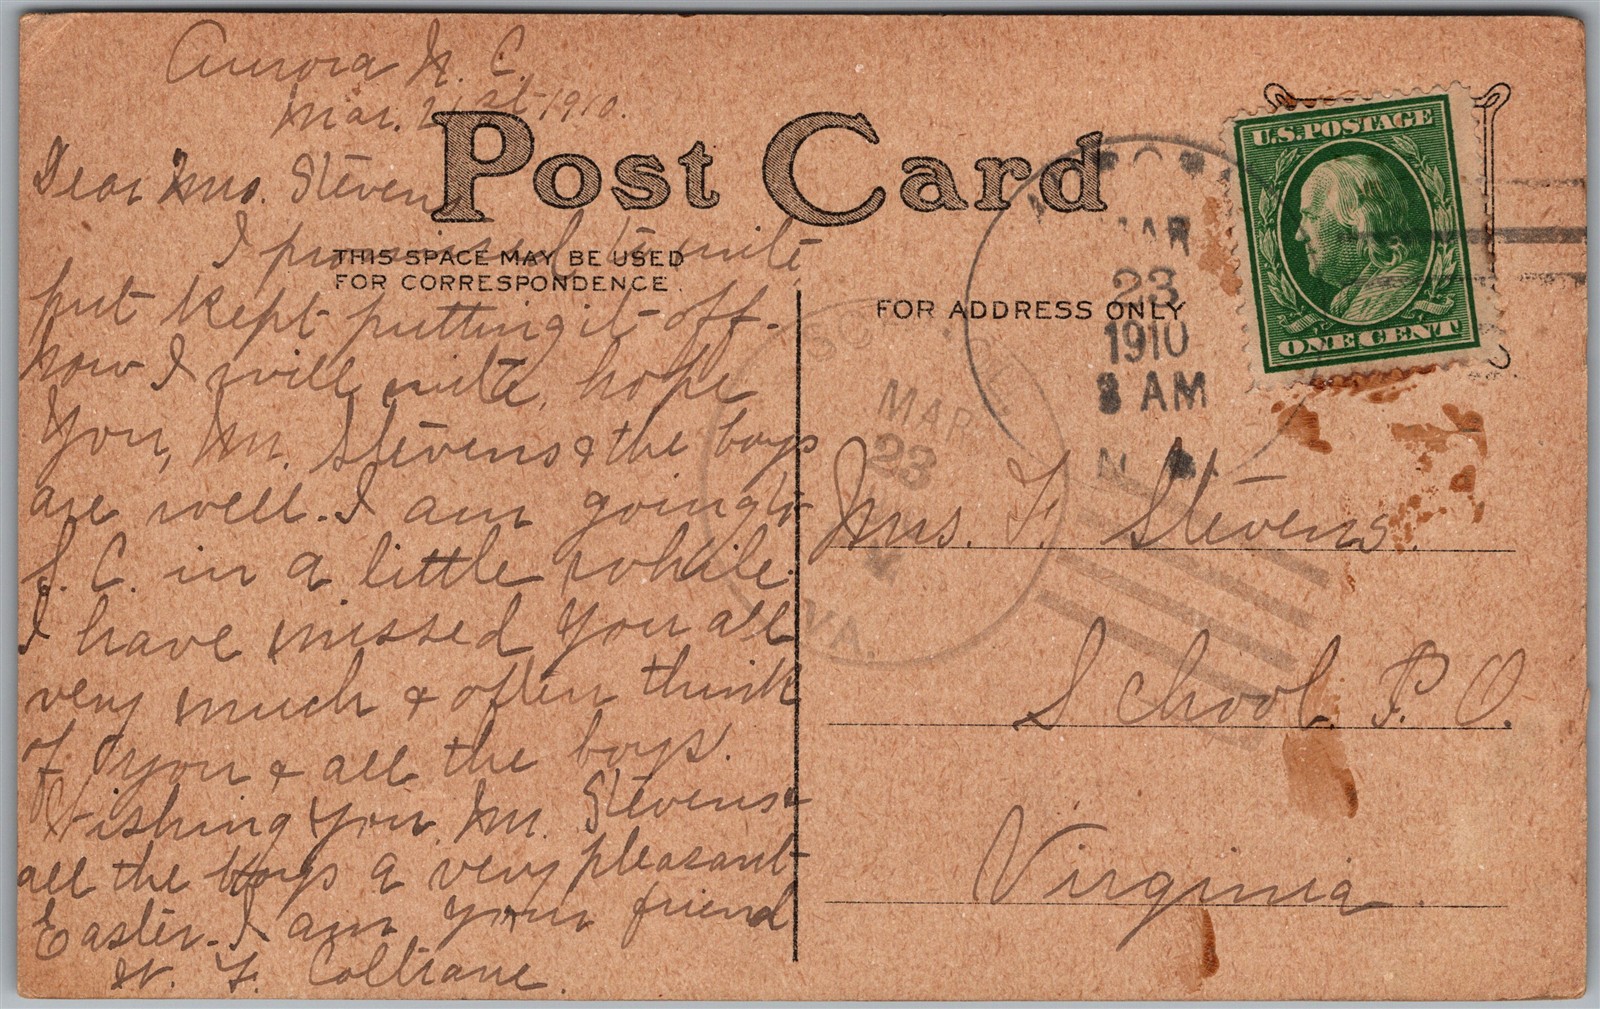 Aurora N. C.
Mar. 21st 1910.
Post Card
Dear Mrs. Stevens
THIS SPACE MAY BE USED
FOR CORRESPONDENCE.
I promised to write
but kept putting it off.
now I will write, hope
you, Mr. Stevens & the boys
are well. I am going to
S. C. in a little while.
I have missed you all
very much & often think
of you & all the boys.
Wishing you Mr. Stevens &
all the boys a very pleasant
Easter. I am your friend
W. F. Coltrane.
FOR ADDRESS ONLY
U.S. POSTAGE
ONE CENT
MAR
23
1910
AM
MAR
23
VA.
Mrs. F. Stevens.
School P. O.
Virginia.